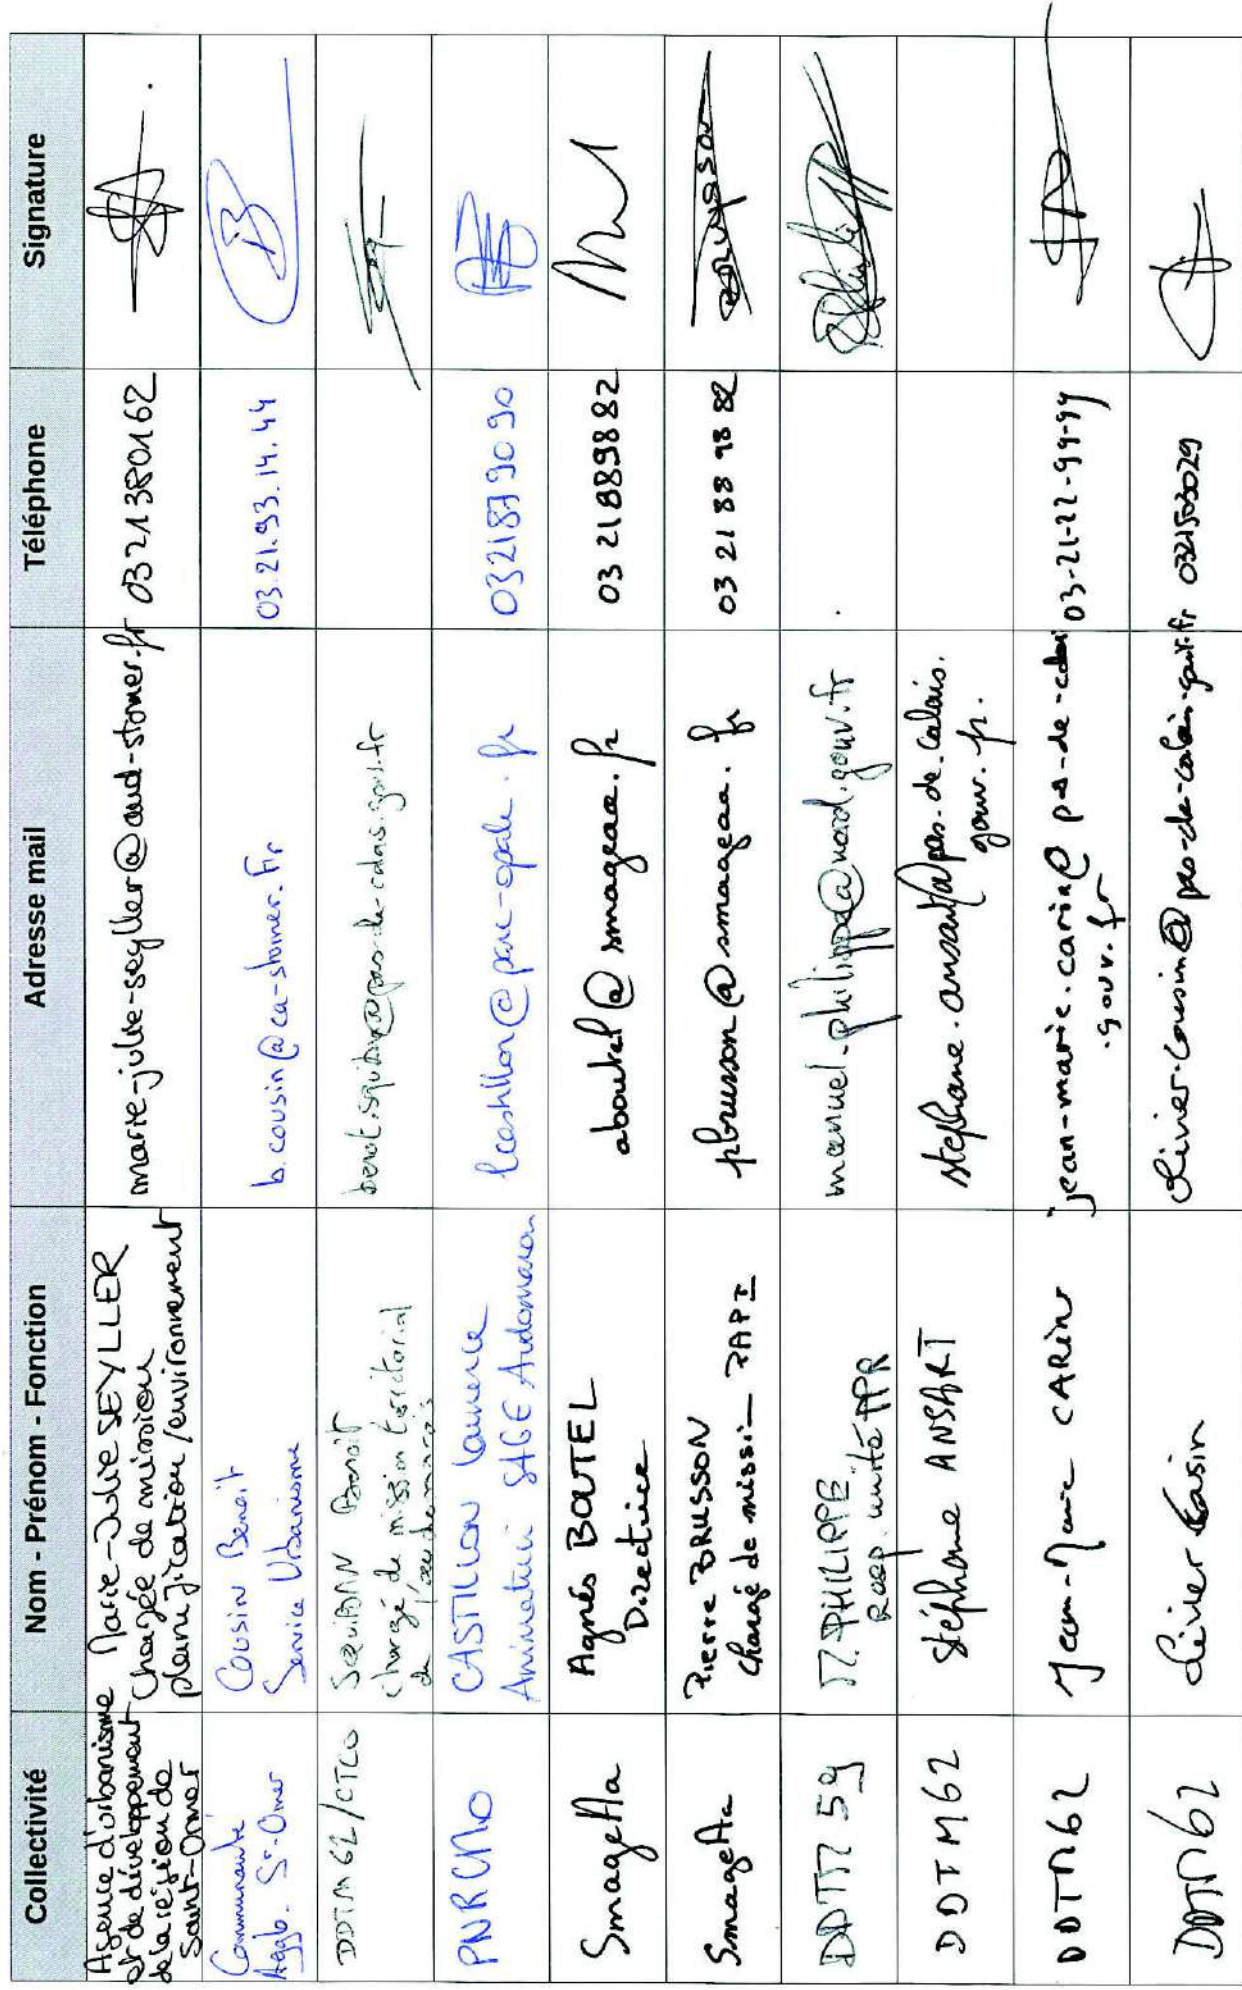 Collectivité
Nom - Prénom - Fonction
Adresse mail
Téléphone
Signature
Agence d'urbanisme
et de développement
de la région de
Saint-Omer
Marie-Julie SEYLLER
Chargée de mission
planification/environnement
marie-julie-seyller@aud-stomer.fr
0321380162
Communauté
Agglo. St-Omer
Cousin Benoit
Service Urbanisme
b.cousin@ca-stomer.fr
03.21.93.14.44
DDTM 62/CTCO
Benoit
chargé de mission territorial
PNRCMO
CASTILLON Laurence
Animatrice SAGE Audomarois
lcastillon@parc-opale.fr
0321879090
SmageAa
Agnès BOUTEL
Directrice
aboutel@smageaa.fr
03 21889882
SmageAa
Pierre BRUSSON
chargé de mission PAPI
pbrusson@smageaa.fr
03 21 88 98 82
DDTM 59
M. PHILIPPE
Resp. unité PPR
manuel.philippe@nord.gouv.fr
DDTM62
Stéphane ANSART
stephane.ansart@pas-de-calais.
gouv.fr.
DDTM62
Jean-Marie CARIN
jean-marie.carin@pas-de-calais
.gouv.fr
03-21-22-99-99
DDTM62
Olivier
@pas-de-calais.gouv.fr
0321503029